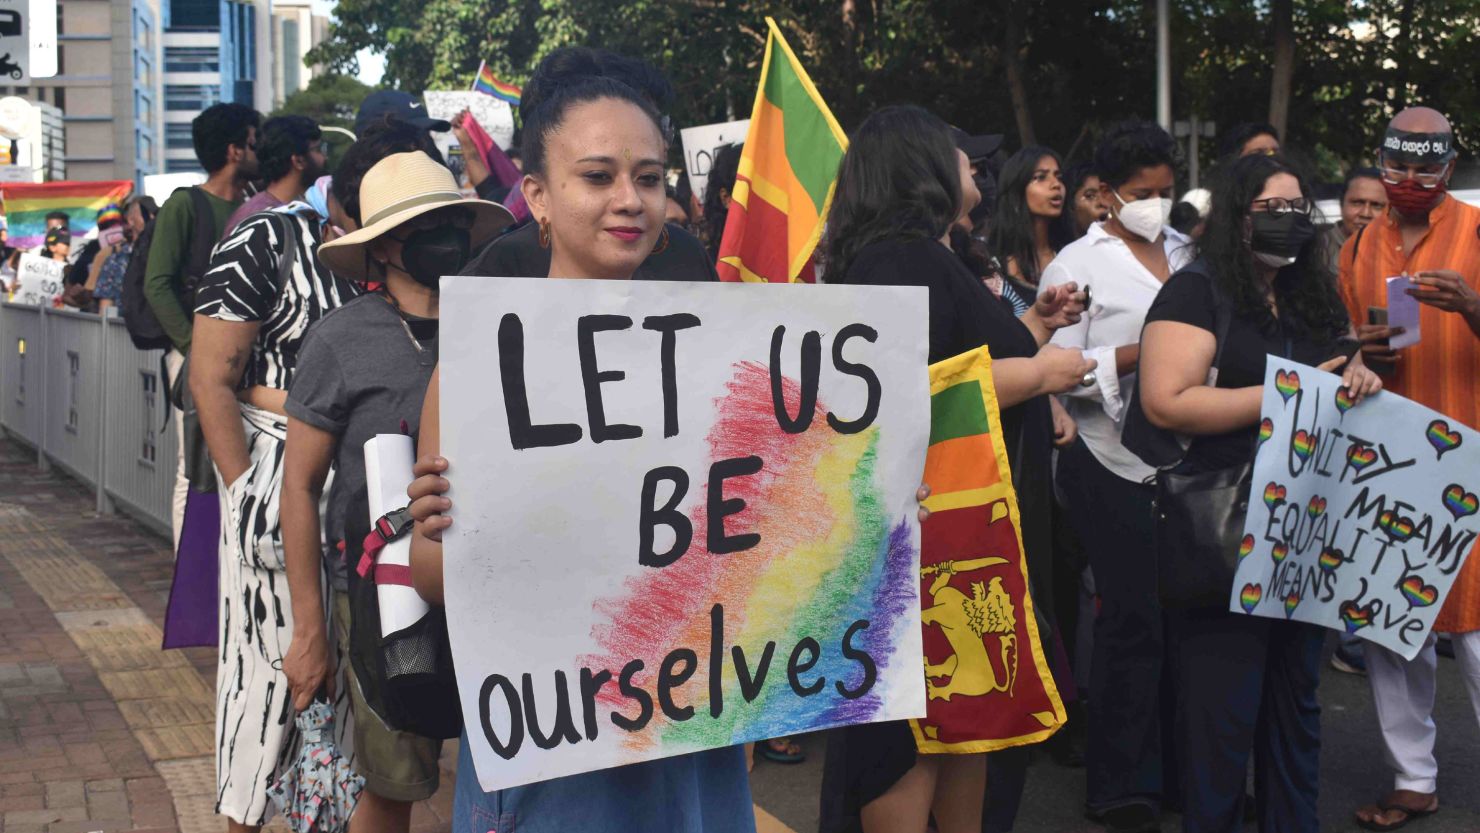 LET US
BE
ourselves
UNITY
MEANS
EQUALITY
MEANS Love